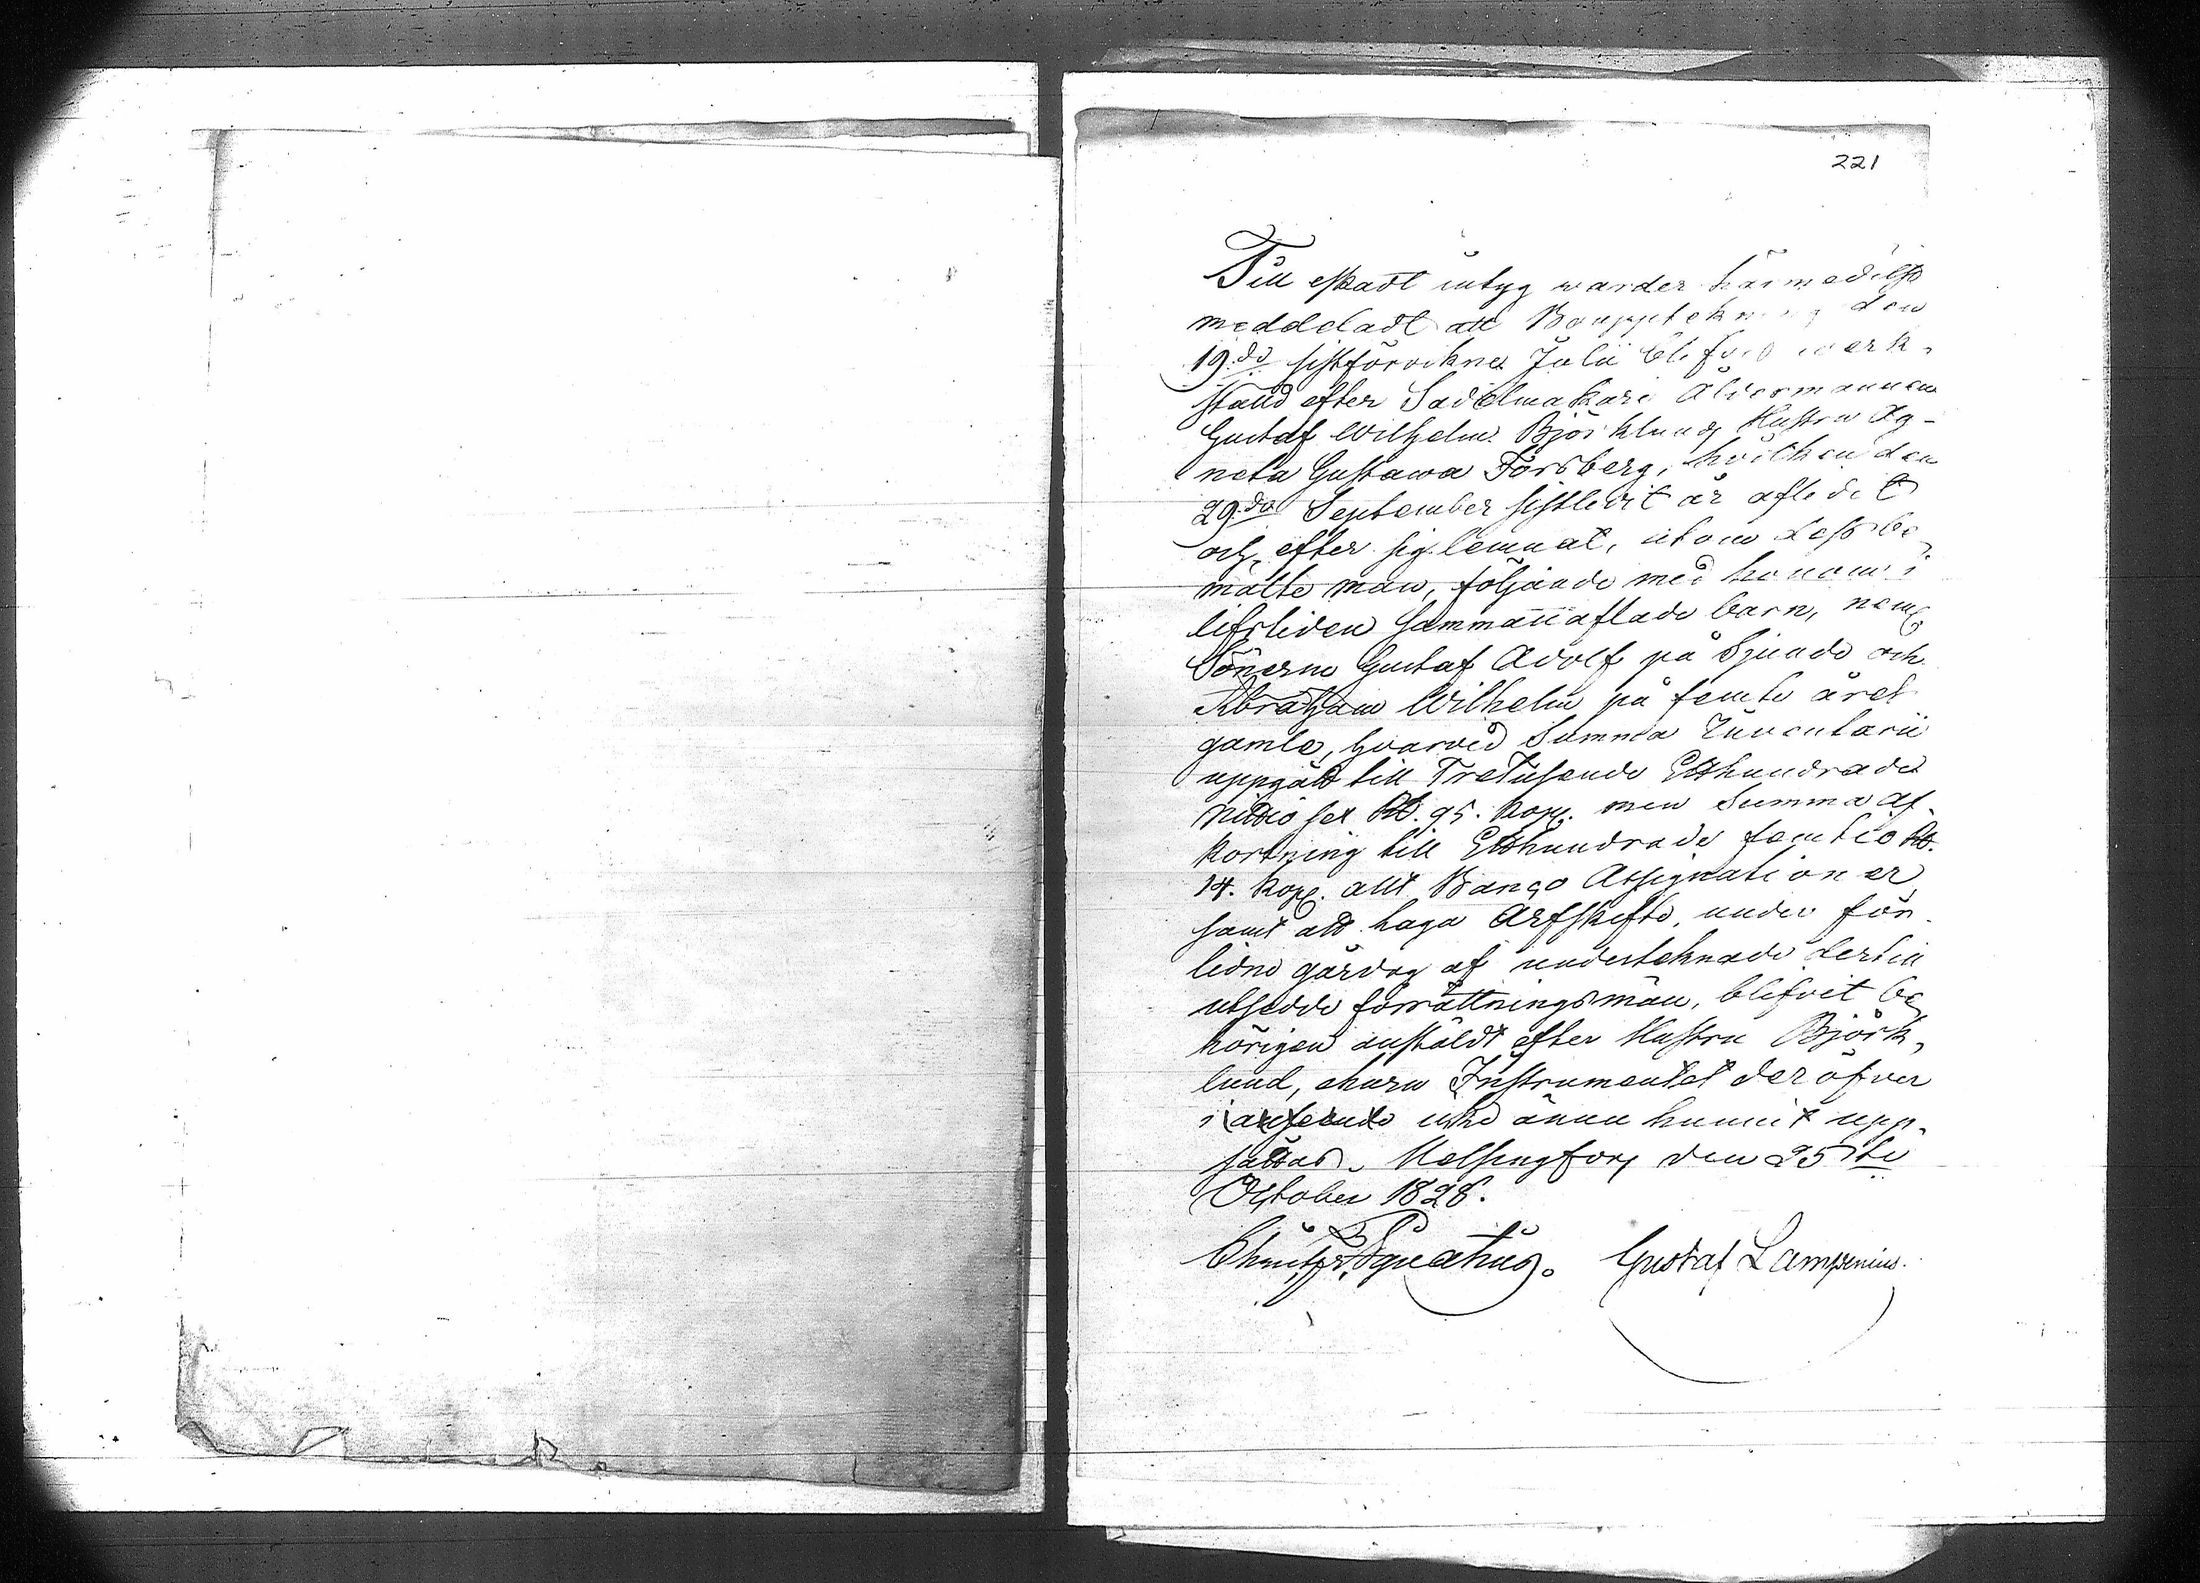 221
Till äskadt intyg warder härmedelst
meddeladt att Bouppteckning den
19:de sistförvikne Julii blifvit werk-
stäld efter Sadelmakare Åldermannen
Gustaf Wilhelm Björklunds Hustru Ag-
neta Gustawa Forsberg, hvilken den
29:de September sistledit år afledet
och efter sig lemnat, utom dess be-
mälte man, följande med honom i
lifstiden sammanaflade barn, neml.
Sönerne Gustaf Adolf på Sjunde och
Abraham Wilhelm på femte året
gamla, hvarvid Summa Inventarii
uppgått till Tretusende Etthundrade
Nittio sex Rb. 95. kop. men Summa af-
kortning till Etthundrade femtio Rb.
14. kop. allt Banco Assignationer,
samt att laga Arfskifte, under för-
lidne gårdag af undertecknade dertill
utsedde förrättningsmän, blifvit be-
hörigen anstäldt efter Hustru Björk-
lund, ehuru Instrumentet deröfver
i anseende icke ännu hunnit upp-
sättas. Helsingfors den 25:te
October 1828.
Ignatius. Gustaf Lampenius.